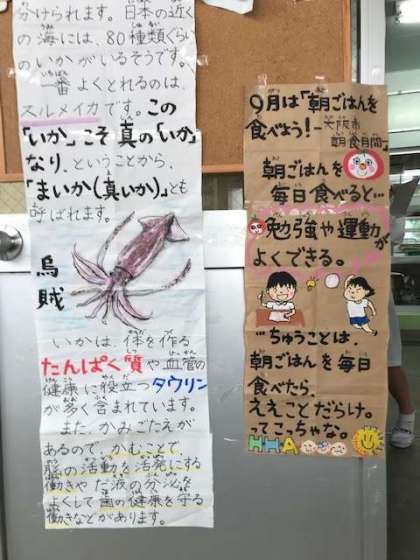 分けられます。日本の近く
の海には、80種類くらい
のいかがいるそうです。
一番よくとれるのは、
スルメイカです。この
「いか」こそ真の「いか」
なり、ということから、
「まいか(真いか)」とも
呼ばれます。
烏賊
いかは、体を作る
たんぱく質や血管の
健康に役立つタウリン
が多く含まれています。
また、かみごたえが
あるので、かむことで、
脳の活動を活発にする
働きや、だ液の分泌を
よくして歯の健康を守る
働きなどがあります。
9月は「朝ごはんを
食べよう!-大阪市
朝食月間」
朝ごはんを
毎日食べると…
勉強や運動が
よくできる。
ちゅうことは、
朝ごはんを毎日
食べたら、
ええことだらけ。
ってこっちゃな。